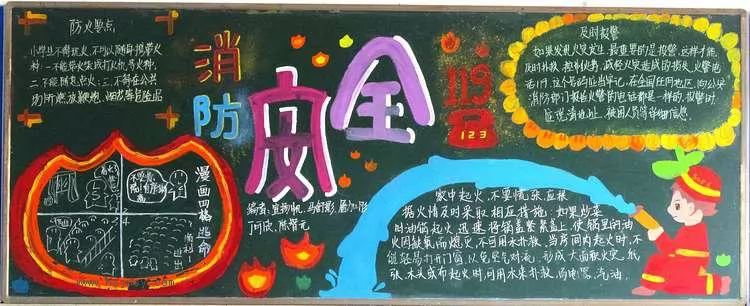 防火要点
小学生不得玩火,不可以随身携带火
种:一不能带火柴或打火机等火种,
二不能随意点火;三不得在公共
场所燃放鞭炮
消防
安全
119
123
及时报警
如果发现火灾发生,最重要的是报警,这样才能
及时扑救,控制火势,减轻火灾造成的损失,火警电
话119,这个号码应当牢记,在全国任何地区,向公安
消防部门报告火警的电话都是一样的,报警时
应说清地址,被困人员等详细信息.
漫画四格
逃命
1
2
3
4
编者:
家中起火,不要慌张,应根
据火情及时采取相应措施,如果炒菜
时油锅起火,迅速将锅盖紧紧盖上,使锅里的油
火因缺氧而熄灭,不可用水扑救,当房间内起火时,不
能轻易打开门窗,以免空气对流,形成大面积火灾,纸
张、木头或布起火时,可用水来扑救,而电器、汽油、